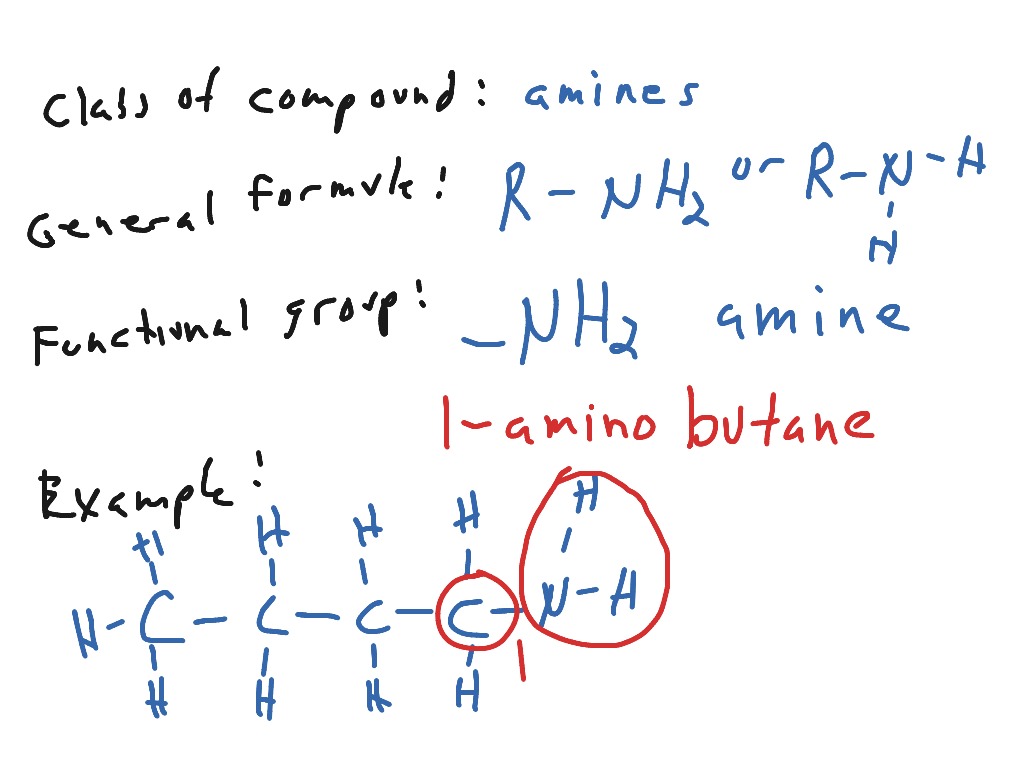 Class of compound: amines
General formula: R - NH2 or R - N - H
H
Functional group: - NH2 amine
1-amino butane
Example:
H H H H H
H - C - C - C - C - N - H
H H H H 1